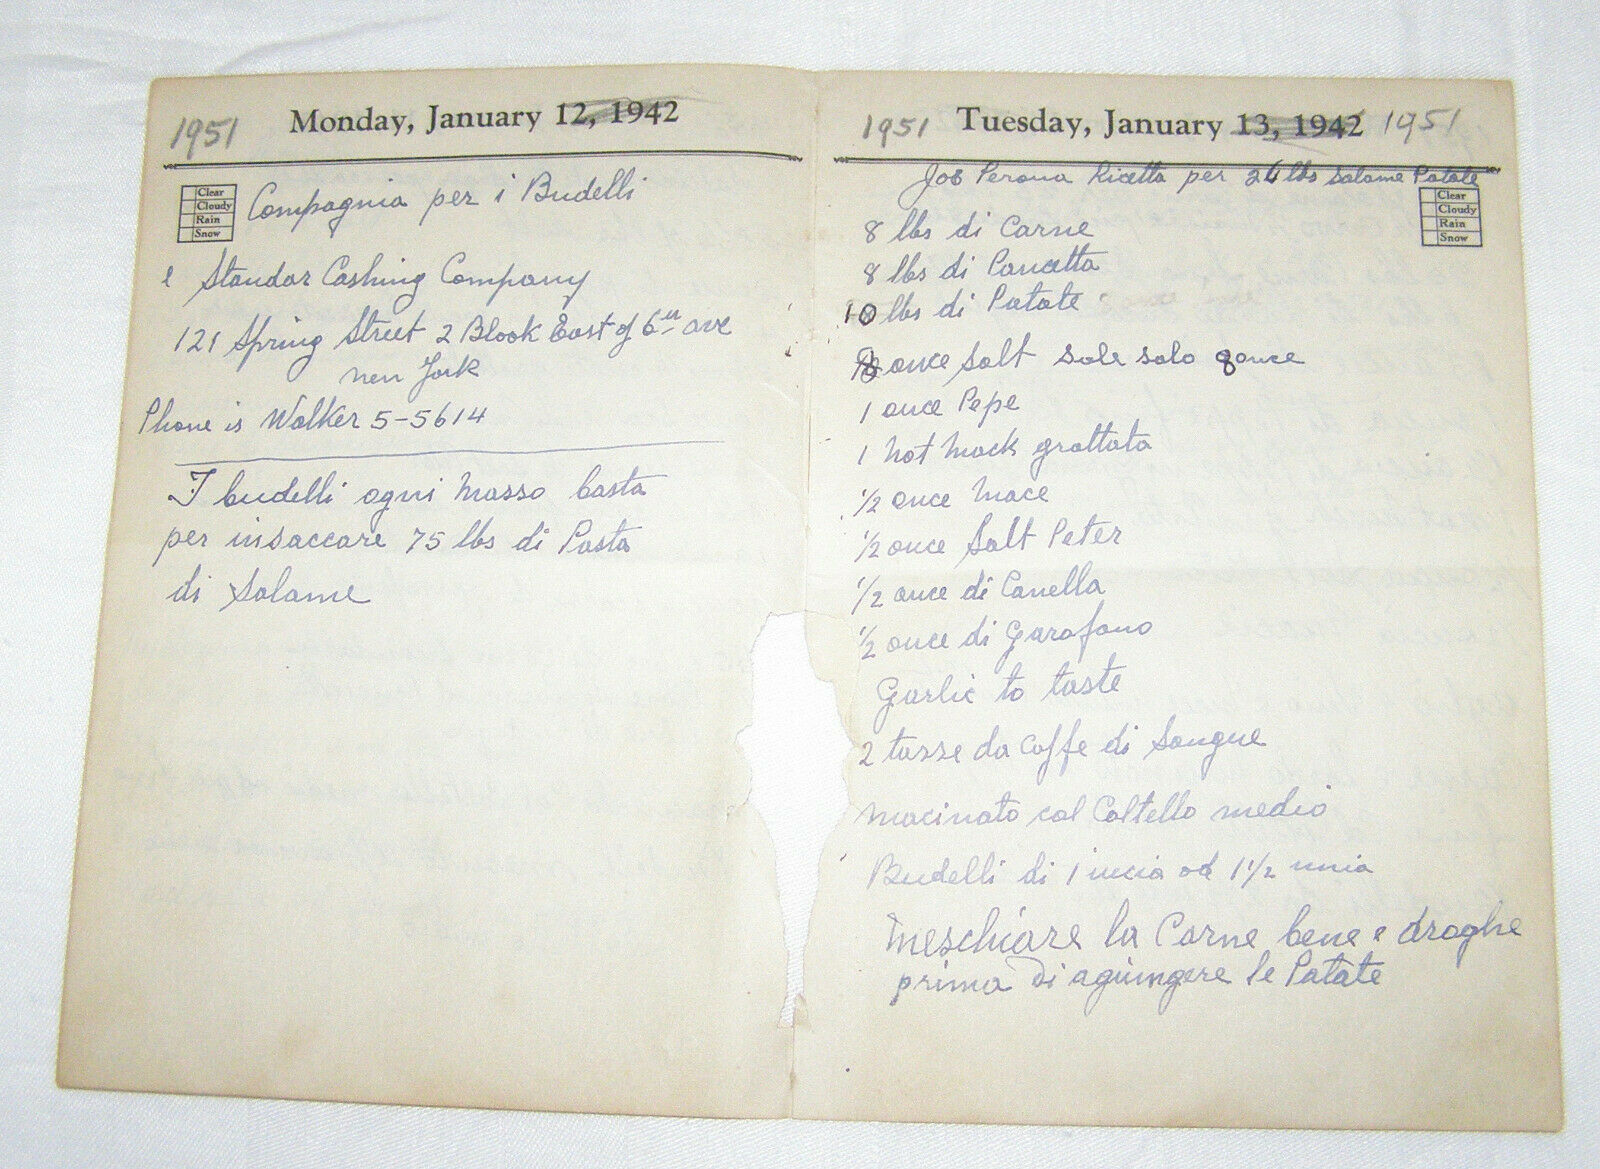 1951
Monday, January 12, 1942
Clear
Cloudy
Rain
Snow
Compagnia per i Budelli
e Standar Cashing Company
121 Spring Street 2 Blook East of 6th ave
new York
Phone is Walker 5-5614
I budelli ogni masso basta
per insaccare 75 lbs di Pasta
di Salame
1951 Tuesday, January 13, 1942 1951
Joe Perona Ricetta per 26 lbs Salame Patate
Clear
Cloudy
Rain
Snow
8 lbs di Carne
8 lbs di Pancetta
10 lbs di Patate
once Salt sale solo 9 once
1 once Pepe
1 not mack grattata
1/2 once mace
1/2 once Salt Peter
1/2 once di Canella
1/2 once di Garofano
Garlic to taste
2 tazze da Caffe di Sangue
macinato col Coltello medio
Budelli di 1 incia od 1 1/2 incia
meschiare la Carne bene e droghe
prima di agiungere le Patate